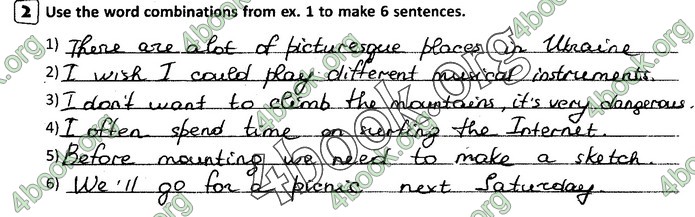 2 Use the word combinations from ex. 1 to make 6 sentences.
1) There are alot of picturesque places in Ukraine
2) I wish I could play different musical instruments.
3) I don't want to climb the mountains, it's very dangerous.
4) I often spend time on surfing the Internet.
5) Before mounting we need to make a sketch.
6) We'll go for a picnic next Saturday.
4book.org